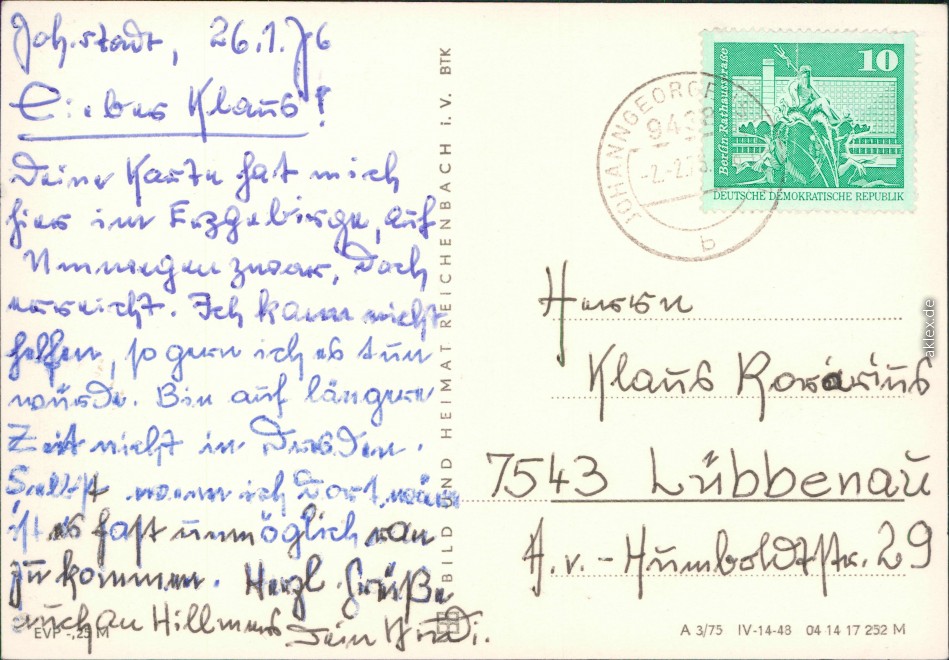 Joh.stadt, 26.1.76
Lieber Klaus!
Deine Karte hat mich
hier im Erzgebirge, auf
Umwegen zwar, doch
erreicht. Ich kann nicht
helfen, so gern ich es tun
würde. Bin auf längere
Zeit nicht in Dresden.
Selbst wenn ich dort wäre
ist es fast unmöglich ran
zu kommen. Herzl. Grüße
auch an Hillmers Dein
EVP -,25 M
BILD UND HEIMAT REICHENBACH i. V. BTK
JOHANNGEORGEN
9438
-2.-2.76
b
10
Berlin, Rathausstraße
DEUTSCHE DEMOKRATISCHE REPUBLIK
Herrn
Klaus Rosarius
7543 Lübbenau
A.v.-Humboldtstr. 29
A 3/75 IV-14-48 04 14 17 252 M
aklex.de